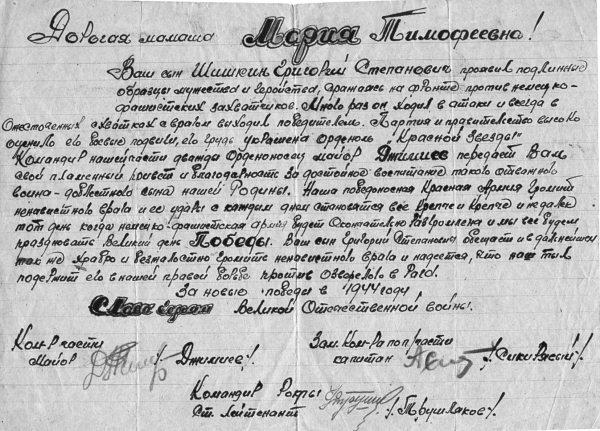 Дорогая мамаша Мария Тимофеевна!
Ваш сын Шишкин Григорий Степанович проявил подлинные
образцы мужества и геройства, сражаясь на фронте против немецко-
фашистских захватчиков. Много раз он ходил в атаки и всегда в
ожесточенных схватках с врагом выходил победителем. Партия и правительство высоко
оценило его боевые подвиги, его грудь украшена орденом "Красной Звезды"
Командир нашей части дважды Орденоносец майор Джилиев передает Вам
свой пламенный привет и благодарность за достойное воспитание такого отважного
воина-доблестного сына нашей Родины. Наша победоносная Красная Армия громит
ненавистного врага и ее удары с каждым днем становятся все крепче и крепче и недалек
тот день когда немецко-фашистская армия будет окончательно разгромлена и мы все будем
праздновать Великий день Победы. Ваш сын Григорий Степанович обещает и в дальнейшем
так же храбро и безжалостно громить ненавистного врага и надеется, что наш тыл
поддержит его в нашей правой борьбе против озверелого врага.
За новые победы в 1944 году
Слава героям Великой Отечественной войны.
Ком-р части
майор /Джилиев/.
Зам. Ком-ра по п/части
капитан
Командир роты
Ст. лейтенант